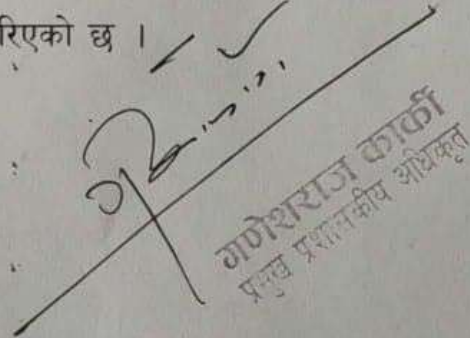 रिएको छ ।
गणेशराज कार्की
प्रमुख प्रशासकीय अधिकृत